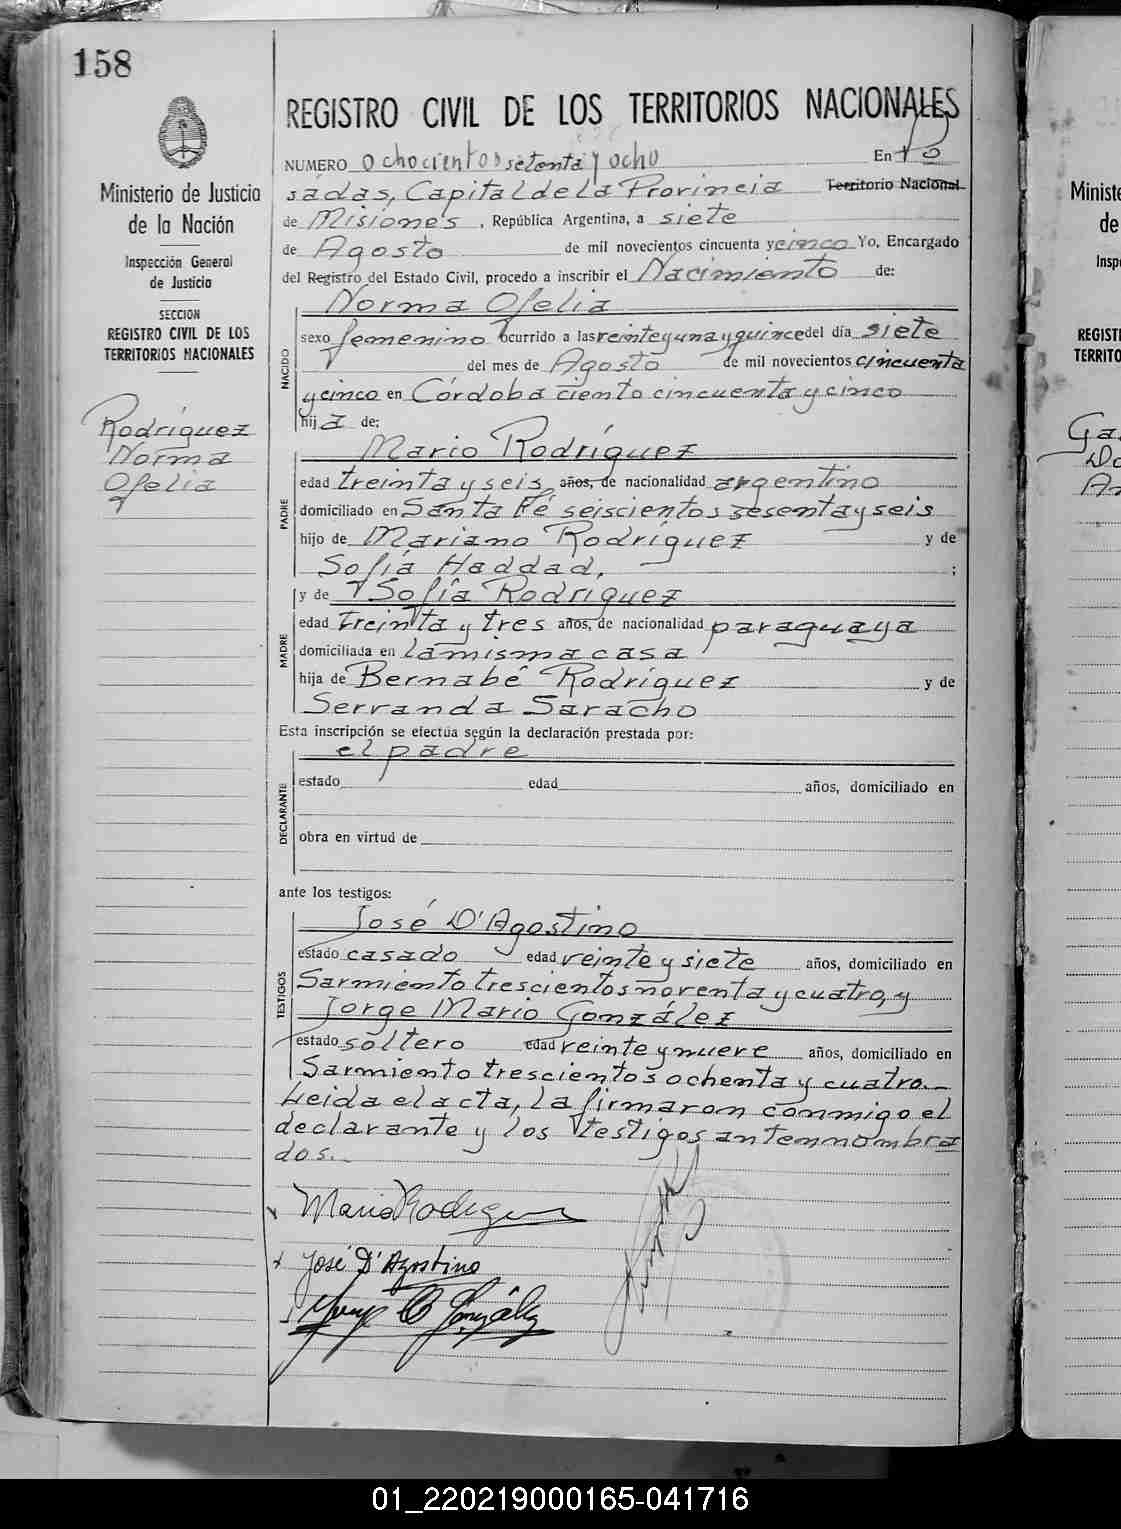 158
Ministerio de Justicia
de la Nación
Inspección General
de Justicia
SECCION
REGISTRO CIVIL DE LOS
TERRITORIOS NACIONALES
Rodríguez
Norma
Ofelia
REGISTRO CIVIL DE LOS TERRITORIOS NACIONALES
NUMERO ochocientos setenta y ocho En Po
sadas, Capital de la Provincia Territorio Nacional
de Misiones, República Argentina, a siete
de Agosto de mil novecientos cincuenta y cinco Yo, Encargado
del Registro del Estado Civil, procedo a inscribir el Nacimiento de:
Norma Ofelia
NACIDO
sexo femenino ocurrido a las veinte y una y quince del día siete
del mes de Agosto de mil novecientos cincuenta
y cinco en Córdoba ciento cincuenta y cinco
hija de:
Mario Rodríguez
PADRE
edad treinta y seis años, de nacionalidad argentino
domiciliado en Santa Fé seiscientos sesenta y seis
hijo de Mariano Rodríguez y de
Sofía Haddad, ;
y de Sofía Rodríguez
MADRE
edad treinta y tres años, de nacionalidad paraguaya
domiciliada en la misma casa
hija de Bernabé Rodríguez y de
Servanda Saracho
Esta inscripción se efectúa según la declaración prestada por:
el padre
DECLARANTE
estado edad años, domiciliado en
obra en virtud de
ante los testigos:
José D'Agostino
TESTIGOS
estado casado edad veinte y siete años, domiciliado en
Sarmiento trescientos noventa y cuatro, y
Jorge Mario González
estado soltero edad veinte y nueve años, domiciliado en
Sarmiento trescientos ochenta y cuatro.-
Leida el acta, la firmaron conmigo el
declarante y los testigos antennombra
dos.-
Mario Rodriguez
José D'Agostino
González
Ministe
de
Inspe
REGISTR
TERRITO
01_220219000165-041716